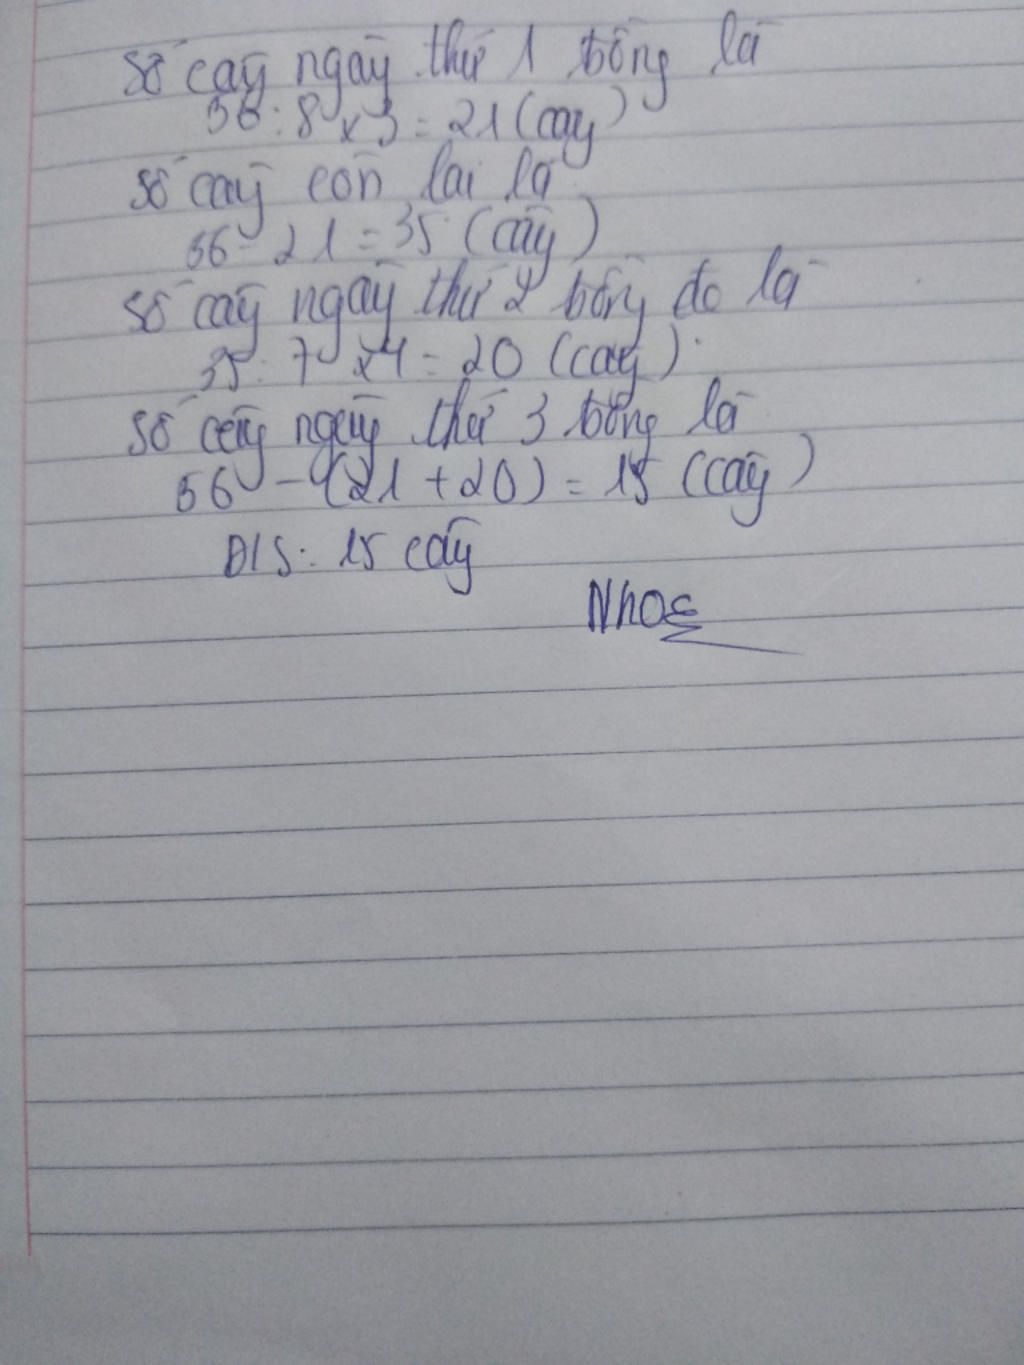 Số cây ngày thứ 1 trồng là
56 : 8 x 3 = 21 (cây)
Số cây còn lại là
56 - 21 = 35 (cây)
Số cây ngày thứ 2 trồng đo là
35 : 7 x 4 = 20 (cây)
Số cây ngày thứ 3 trồng là
56 - (21 + 20) = 15 (cây)
Đ/S: 15 cây
Nhoε